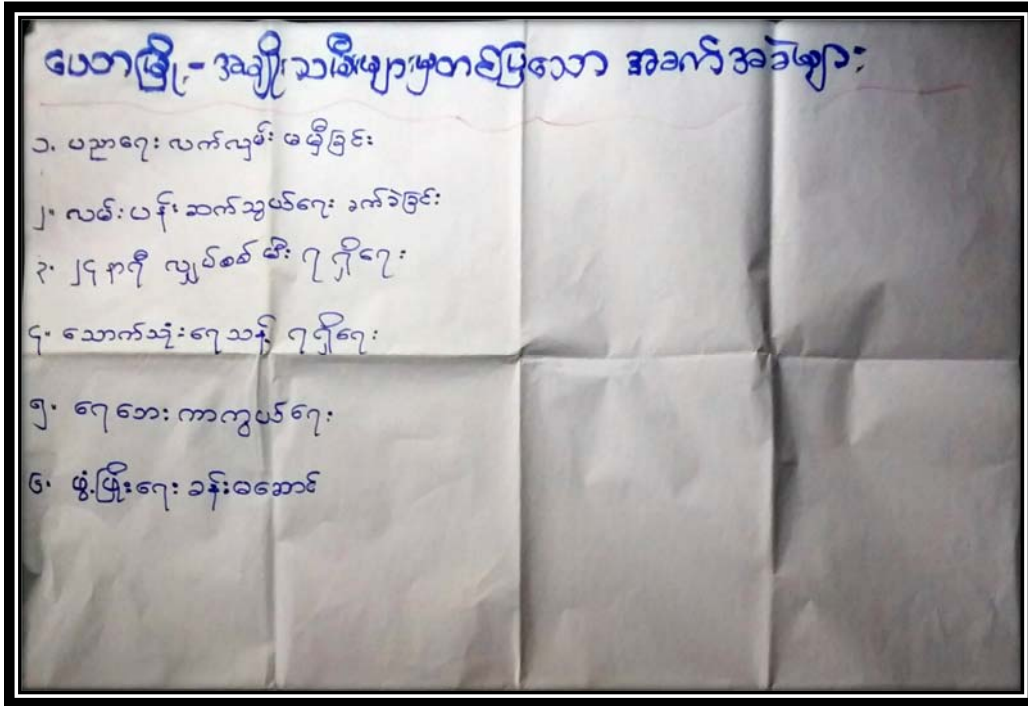 ပေတာမြို့-အမျိုးသမီးများမှတင်ပြသော အခက်အခဲများ
၁. ပညာရေး လက်လှမ်း မမှီခြင်း
၂. လမ်းပန်းဆက်သွယ်ရေး ခက်ခဲခြင်း
၃. ၂၄ နာရီ လျှပ်စစ် မီး ရရှိရေး
၄. သောက်သုံးရေသန့် ရရှိရေး
၅. ရေဘေး ကာကွယ်ရေး
၆. ဖွံ့ဖြိုးရေး ခန်းမဆောင်